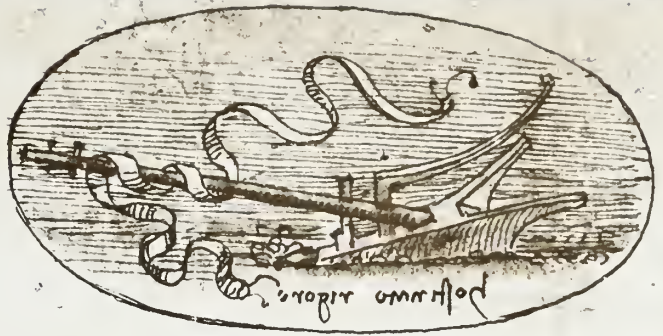 hostinato rigore